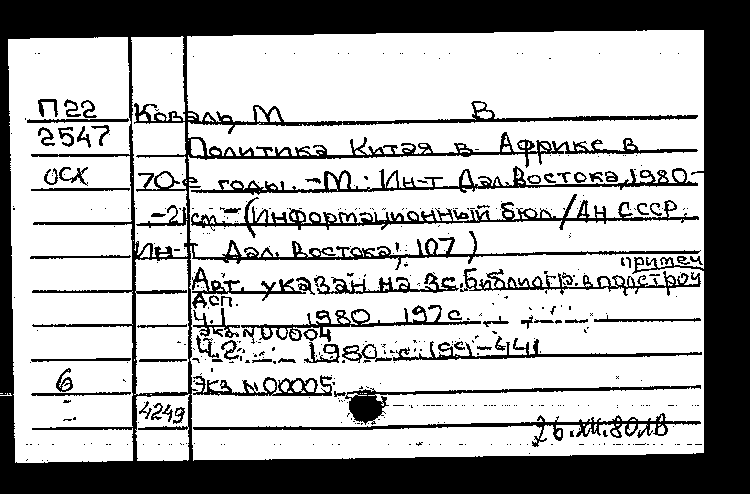 П22 Коваль, М В
2547 Политика Китая в Африке в
ОСХ 70-е годы. - М.: Ин-т Дал. Востока, 1980-
-21см - (Информационный бюл. / АН СССР,
Ин-т Дал. Востока; 107)
примеч
Авт. указан на 3с. Библиогр. в подстроч
Асп.
Ч.1 1980. 197с.
Экз. N00004
Ч.2. 1980 с. 199-441
6 Экз N00005
4249
26.XII.80ЛВ